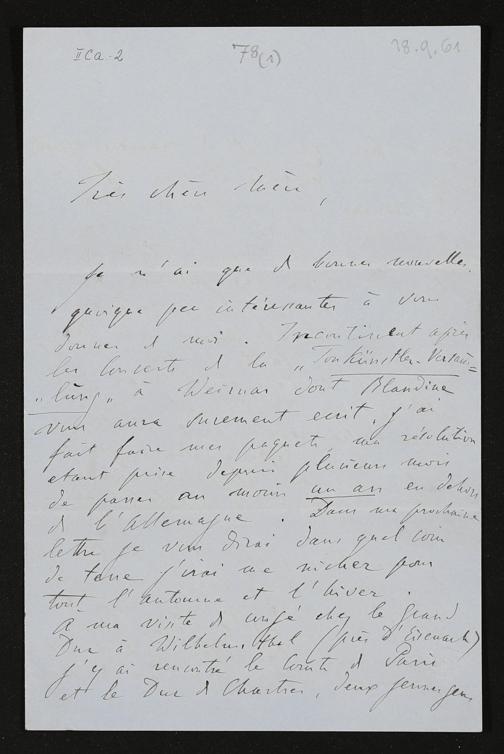 II Ca-2 78(1) 18.9.61
Très chère Mère,
Je n'ai que de bonnes nouvelles,
quoique peu intéressantes à vous
donner de moi. Incontinent après
les Concerts de la „Tonkünstler-Versam=
„lung„ à Weimar dont Blandine
vous aura surement ecrit, j'ai
fait faire mes paquets ma résolution
etant prise depuis plusieurs mois
de passer au moins un an en dehors
de l'Allemagne. Dans ma prochaine
lettre je vous dirai dans quel coin
de terre j'irai me nicher pour
tout l'automne et l'hiver.
A ma visite de congé chez le Grand
Duc à Wilhelmsthal (près d'Eisenach)
j'y ai rencontré le Comte de Paris
et le Duc de Chartres, deux jeunes gens